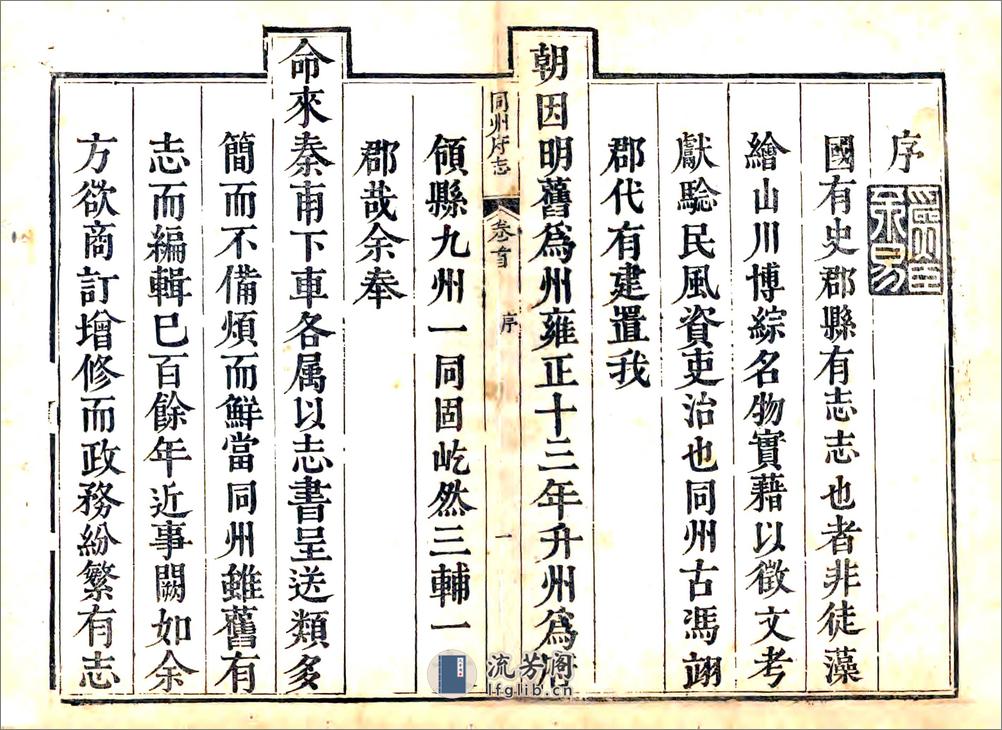 序
國有史郡縣有志志也者非徒藻
繪山川博綜名物實藉以徵文考
獻驗民風資吏治也同州古馮翊
郡代有建置我
朝因明舊爲州雍正十三年升州爲府
同州府志 卷首 序 一
領縣九州一同固屹然三輔一
郡哉余奉
命來秦甫下車各属以志書呈送類多
簡而不備煩而鮮當同州雖舊有
志而編輯已百餘年近事闕如余
方欲商訂增修而政務紛繁有志
流芳阁
lfglib.cn